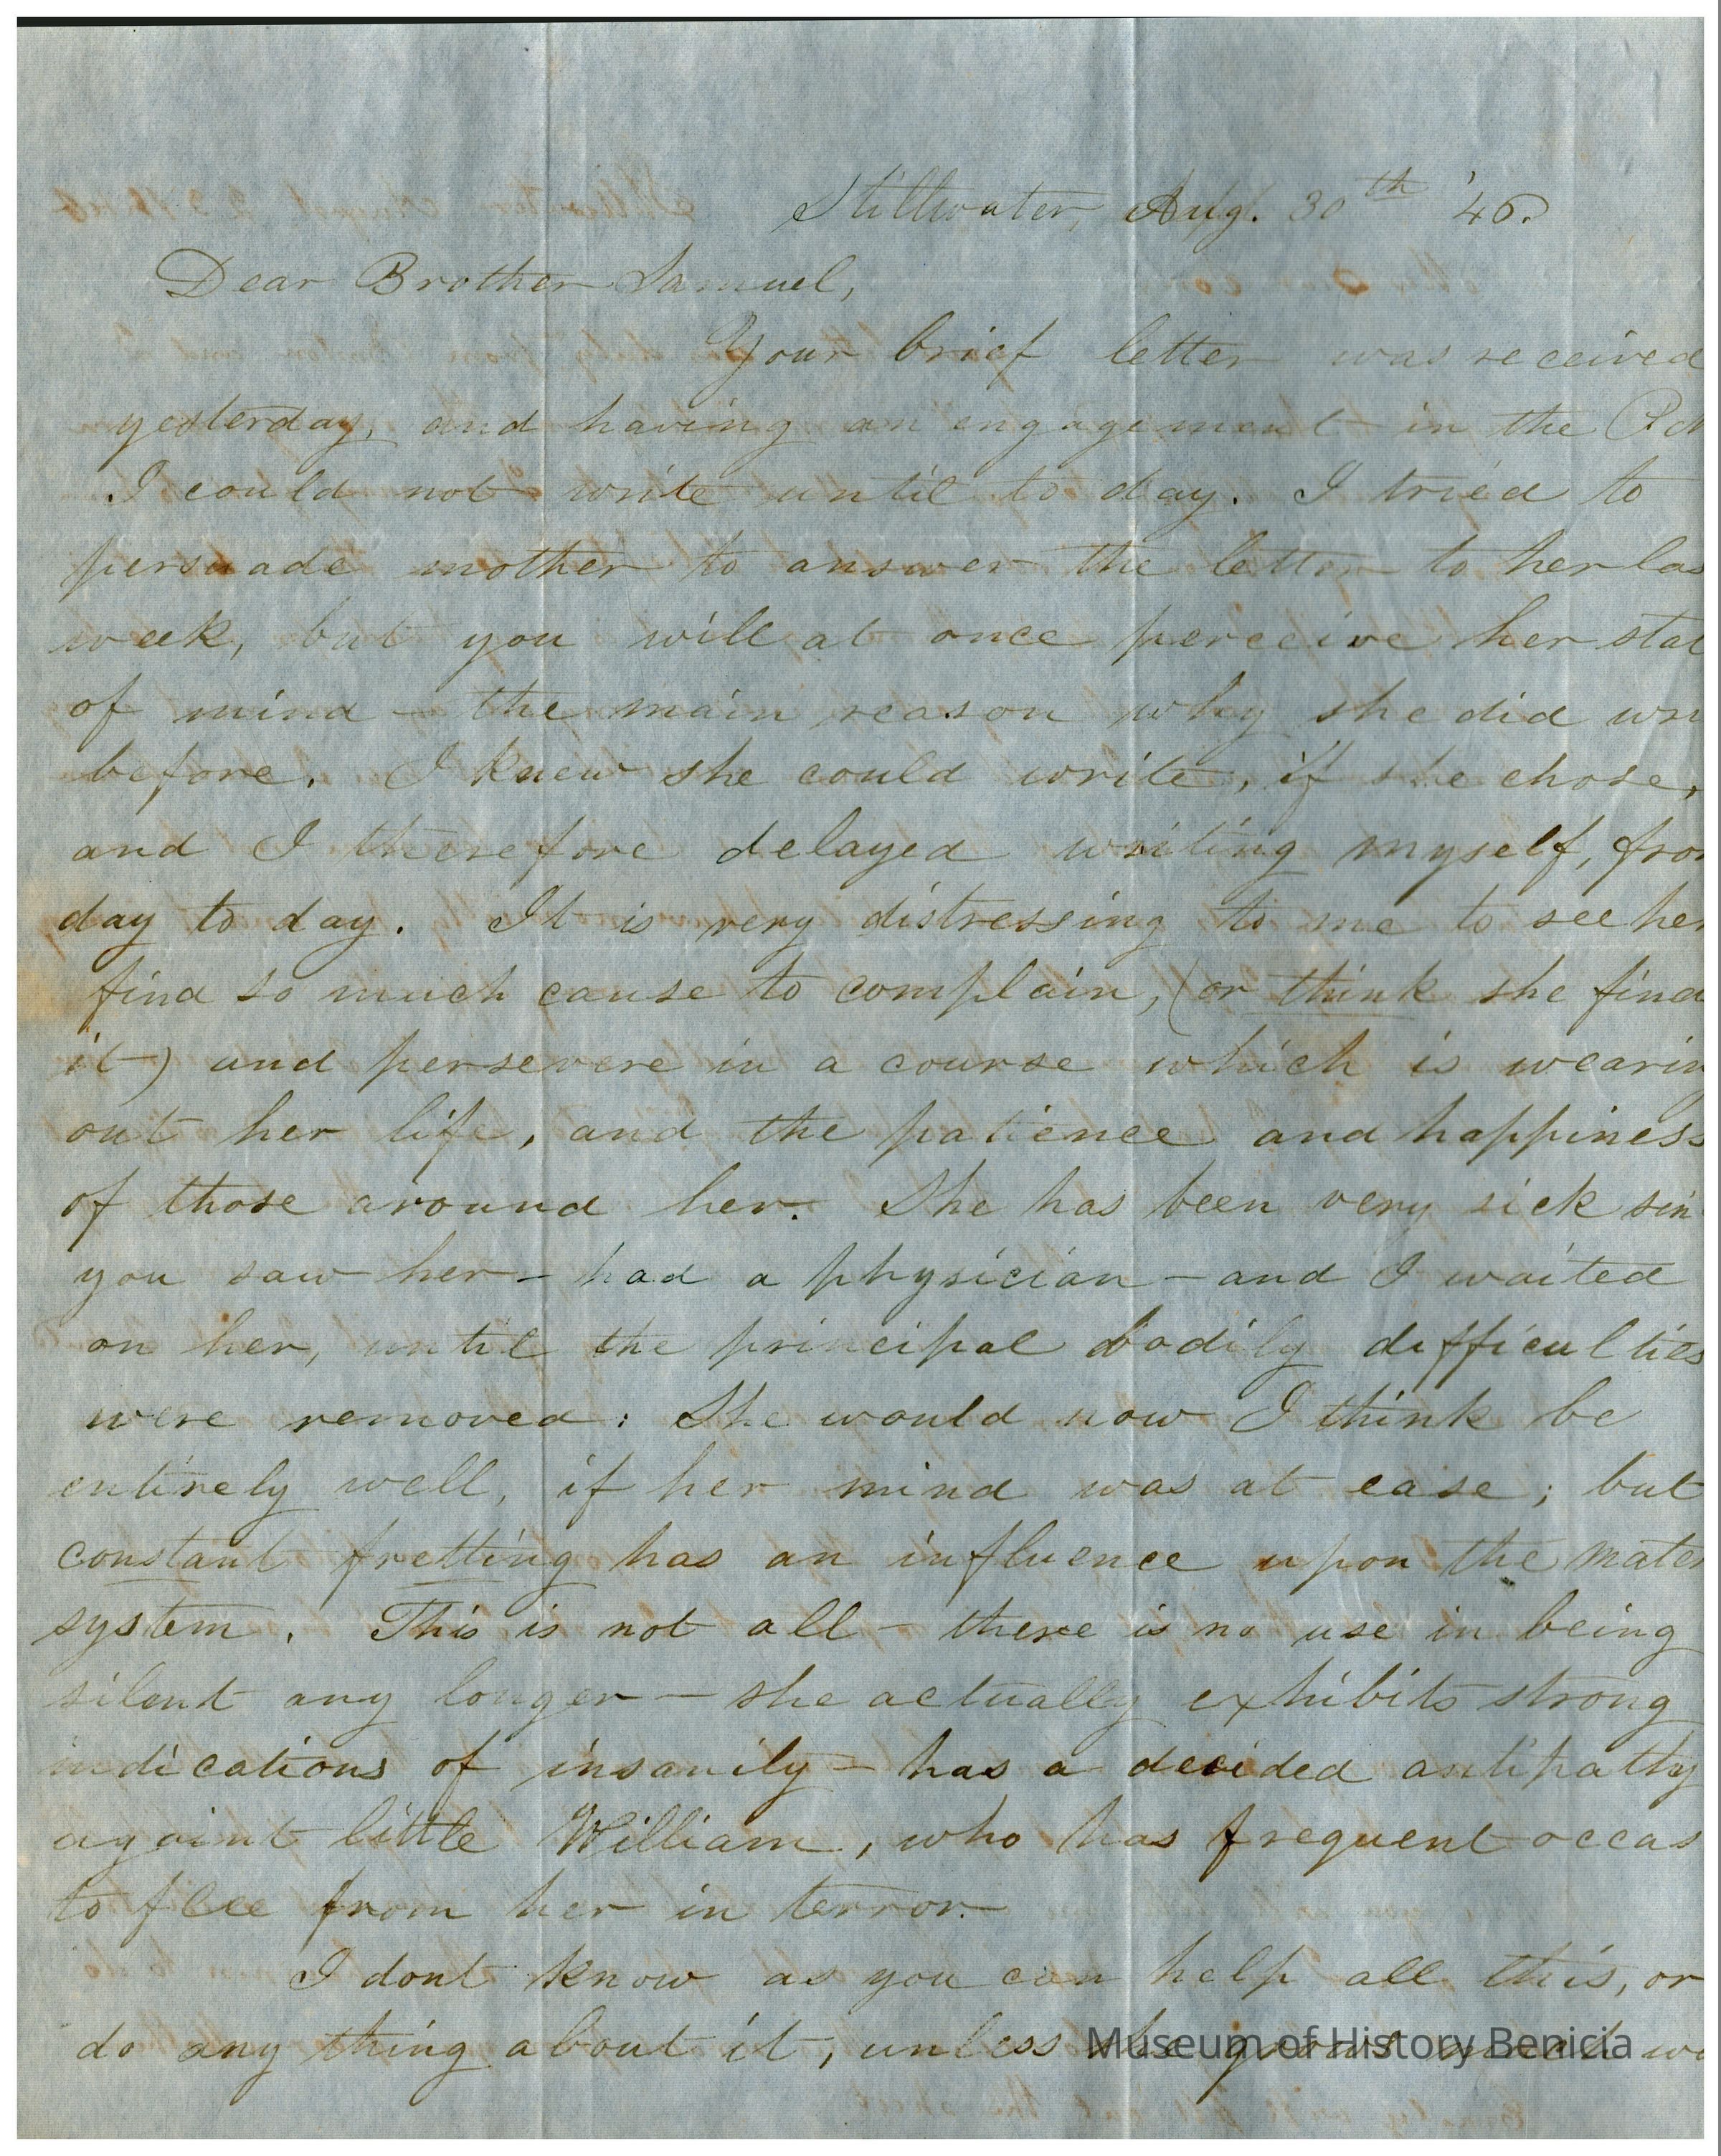 Stillwater, Aug. 30th '46.
Dear Brother Samuel,
Your brief letter was received
yesterday, and having an engagement in the
I could not write until to day. I tried to
persuade mother to answer the letter to her las
week, but you will at once perceive her stat
of mind - the main reason why she did wri
before. I knew she could write, if she chose,
and I therefore delayed writing myself, from
day to day. It is very distressing to me to see her
find so much cause to complain, (or think she find
it) and persevere in a course which is wearin
out her life, and the patience and happiness
of those around her. She has been very sick sin
you saw her - had a physician - and I waited
on her, until the principal bodily difficulties
were removed: She would now I think be
entirely well, if her mind was at ease; but
constant fretting has an influence upon the mater
system. This is not all - there is no use in being
silent any longer - she actually exhibits strong
indications of insanity - has a decided antipathy
against little William, who has frequent occas
to flee from her in terror.
I dont know as you can help all this, or
do any thing about it, unless she grows much wo
Museum of History Benicia